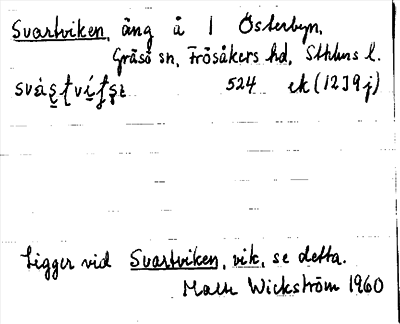 Svartviken, äng å 1 Österbyn,
Gräsö sn, Frösåkers hd, Sthlms l.
524 ek (12J9j)
Ligger vid Svartviken, vik, se detta.
Wickström 1960